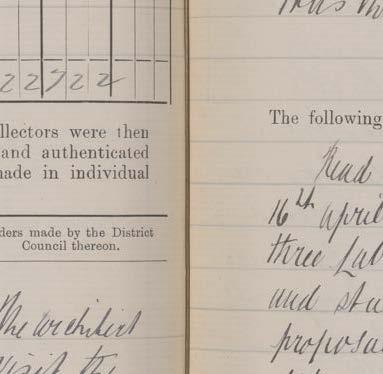 22722
llectors were then
and authenticated
made in individual
ders made by the District
Council thereon.
The architect
visit the
The following
Read
16th April
three
and
proposa